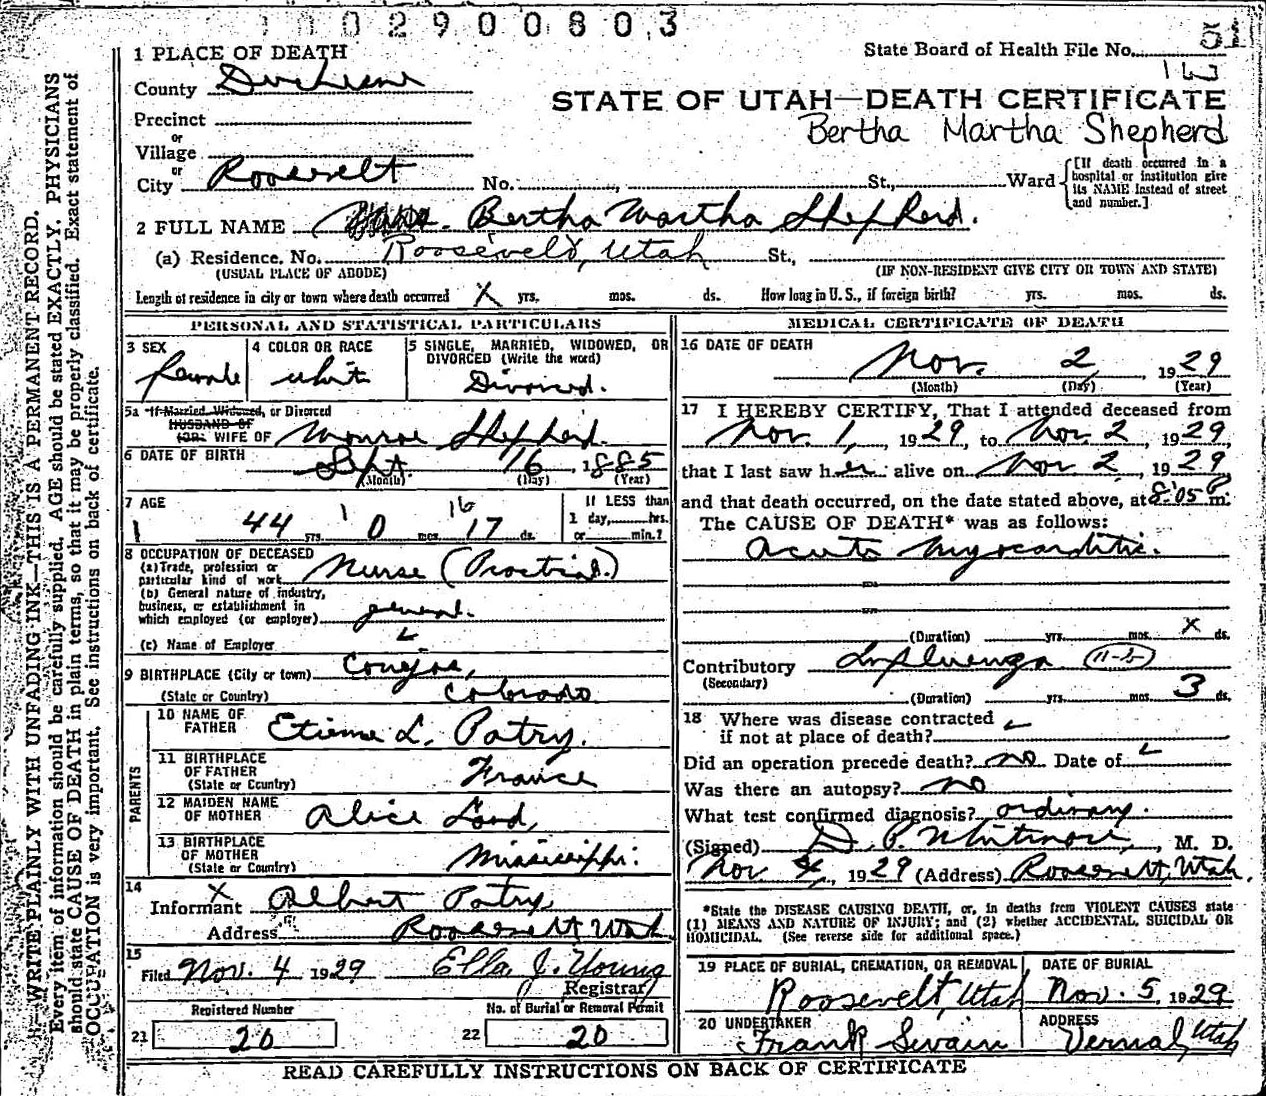 0 0 2 9 0 0 8 0 3
1 PLACE OF DEATH
State Board of Health File No. 51
County Duchesne
13
STATE OF UTAH—DEATH CERTIFICATE
Precinct
Bertha Martha Shepherd
or
Village
or
City Roosevelt No. , St., Ward [If death occurred in a hospital or institution give its NAME instead of street and number.]
2 FULL NAME Bertha Martha Shepherd.
(a) Residence, No. Roosevelt, Utah St.,
(USUAL PLACE OF ABODE) (IF NON-RESIDENT GIVE CITY OR TOWN AND STATE)
Length of residence in city or town where death occurred X yrs. mos. ds. How long in U. S., if foreign birth? yrs. mos. ds.
PERSONAL AND STATISTICAL PARTICULARS
3 SEX
female
4 COLOR OR RACE
white
5 SINGLE, MARRIED, WIDOWED, OR DIVORCED (Write the word)
Divorced.
5a If Married, Widowed, or Divorced
HUSBAND OF
(OR) WIFE OF Monroe Shepherd.
6 DATE OF BIRTH Sept. 16, 1885
(Month) (Day) (Year)
7 AGE
1 16
1 44 yrs. 0 mos. 17 ds.
If LESS than
1 day, hrs.
or min.?
8 OCCUPATION OF DECEASED
(a) Trade, profession or
particular kind of work Nurse (Practical.)
(b) General nature of industry,
business, or establishment in
which employed (or employer) general.
(c) Name of Employer
9 BIRTHPLACE (City or town) Conejos,
(State or Country) Colorado
PARENTS
10 NAME OF
FATHER Etienne L. Patry.
11 BIRTHPLACE
OF FATHER France
(State or Country)
12 MAIDEN NAME
OF MOTHER Alice Lord,
13 BIRTHPLACE
OF MOTHER Mississippi.
(State or Country)
14 X
Informant Albert Patry,
Address Roosevelt Utah
15
Filed Nov. 4 1929 Ella J. Young
Registrar
Registered Number No. of Burial or Removal Permit
21 20 22 20
MEDICAL CERTIFICATE OF DEATH
16 DATE OF DEATH
Nov. 2, 1929
(Month) (Day) (Year)
17 I HEREBY CERTIFY, That I attended deceased from
Nov. 1, 1929, to Nov. 2 1929,
that I last saw her alive on Nov 2, 1929
and that death occurred, on the date stated above, at 8:05 P m.
The CAUSE OF DEATH* was as follows:
Acute Myocarditis.
(Duration) yrs. mos. X ds.
Contributory Influenza (11-b)
(Secondary)
(Duration) yrs. mos. 3 ds.
18 Where was disease contracted
if not at place of death?
Did an operation precede death? no Date of
Was there an autopsy? no
What test confirmed diagnosis? ordinary.
(Signed) D. P. Whitmore, M. D.
Nov 4, 1929 (Address) Roosevelt, Utah.
*State the DISEASE CAUSING DEATH, or, in deaths from VIOLENT CAUSES state
(1) MEANS AND NATURE OF INJURY; and (2) whether ACCIDENTAL, SUICIDAL OR
HOMICIDAL. (See reverse side for additional space.)
19 PLACE OF BURIAL, CREMATION, OR REMOVAL
Roosevelt, Utah
DATE OF BURIAL
Nov. 5, 1929
20 UNDERTAKER
Frank Swain
ADDRESS
Vernal, Utah
READ CAREFULLY INSTRUCTIONS ON BACK OF CERTIFICATE
—WRITE PLAINLY WITH UNFADING INK—THIS IS A PERMANENT RECORD.
Every item of information should be carefully supplied. AGE should be stated EXACTLY. PHYSICIANS
should state CAUSE OF DEATH in plain terms, so that it may be properly classified. Exact statement of
OCCUPATION is very important. See instructions on back of certificate.